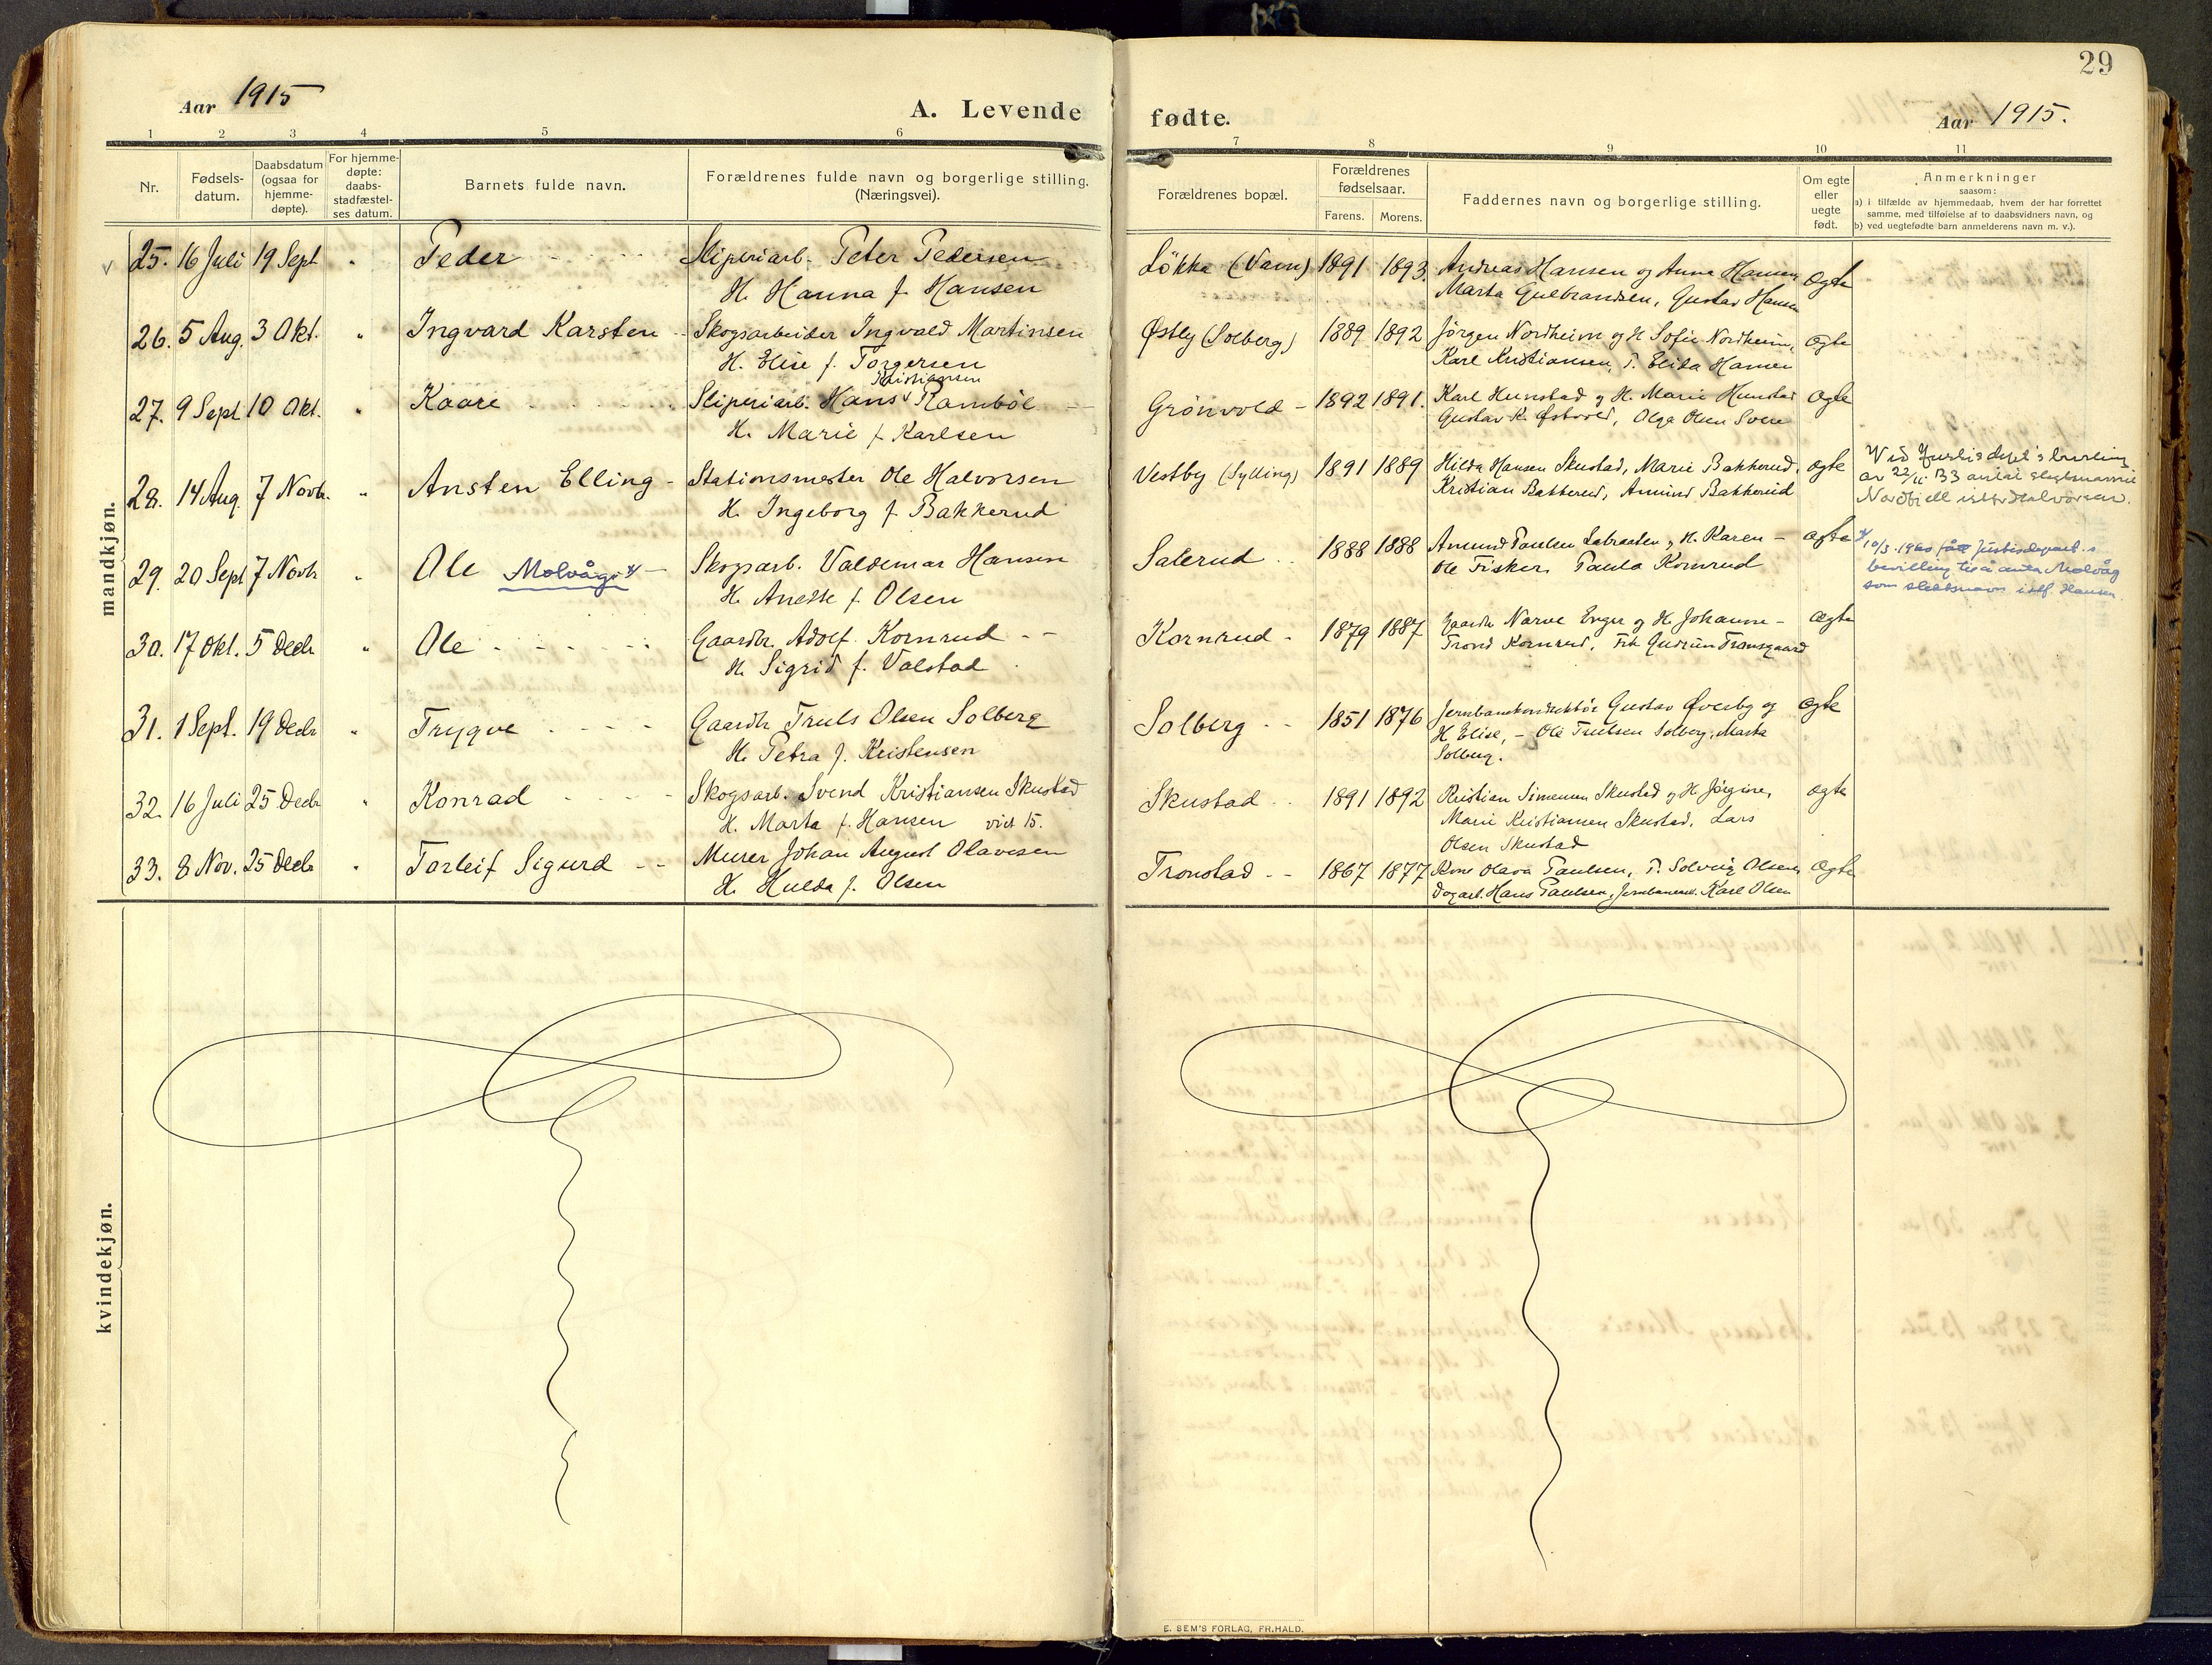 29
Aar 1915
A. Levende
fødte.
Aar 1915.
1 2 3 4 5 6 7 8 9 10 11
Nr.
Fødsels-
datum.
Daabsdatum
(ogsaa for
hjemme-
døpte).
For hjemme-
døpte:
daabs-
stadfæstel-
ses datum.
Barnets fulde navn.
Forældrenes fulde navn og borgerlige stilling.
(Næringsvei).
Forældrenes bopæl.
Forældrenes
fødselsaar.
Farens. Morens.
Faddernes navn og borgerlige stilling.
Om egte
eller
uegte
født.
Anmerkninger
saasom:
a) i tilfælde av hjemmedaab, hvem der har forrettet
samme, med tilføielse af to daabsvidners navn, og
b) ved uegtefødte barn anmelderens navn m. v.).
mandkjøn.
25. 16 Juli 19 Sept " Peder Sliperiarb. Peter Pedersen Løkka (Varn) 1891 1893. Andreas Hansen og Anna Hansen, ægte
H. Hanna f. Hansen Marta Gulbrandsen, Gustav Hansen
26. 5 Aug. 3 Okt. " Ingvard Karsten Skogsarbeider Ingvald Martinsen Østby (Solberg) 1889 1892 Jørgen Nordheim og H. Sofie Nordheim, ægte
H. Elise f. Torgersen Karl Kristiansen, P. Elida Hansen
27. 9 Sept 10 Okt. " Kaare Sliperiarb. Hans Kristiansen Rambøl Grønvold 1892 1891. Karl Hunstad og H. Marie Hunstad ægte
H. Marie f. Karlsen Gustav K. Østvold, Olga Olsen
28. 14 Aug. 7 Novb. " Ansten Elling Stationsmester Ole Halvorsen Vestby (Sylling) 1891 1889 Hilda Hansen Skustad, Marie Bakkerud, ægte
H. Ingeborg f. Bakkerud Kristian Bakkerud, Amund Bakkerud
Ved Justisdept's bevilling
av 22/11 33 antat slegtsnavnet
Nordfjell istf. Halvorsen.
29. 20 Sept 7 Novb " Ole Molvåg x/ Skogsarb. Valdemar Hansen Salerud 1888 1888 Amund Paulsen Labraaten, H. Karen ægte
H. Anette f. Olsen Ole Fisker, Paula Kornrud
x/ 10/3 1960 fått Justisdepart.s
bevilling til å anta Molvåg
som slektsnavn istf. Hansen.
30. 17 Okt. 5 Decb " Ole Gaardbr. Adolf Kornrud Kornrud 1879 1887 Gaardbr. Narve Enger og H. Johanne ægte
H. Sigrid f. Valstad Trond Kornrud, Frk Gudrun Transgaard
31. 1 Sept. 19 Decb " Trygve Gaardbr Truls Olsen Solberg Solberg 1851 1876 Jernbanekonduktør Gustav Øverby og ægte
H. Petra f. Kristensen H. Elise, Ole Trulsen Solberg, Marta
Solberg.
32. 16 Juli 25 Decb " Konrad Skogsarb. Svend Kristiansen Skustad Skustad 1891 1892 Kristian Simensen Skustad og H. Jørgine, ægte
H. Marta f. Hansen viet 15. Marie Kristiansen Skustad, Lars
Olsen Skustad
33. 8 Nov. 25 Decb " Torleif Sigurd Murer Johan August Olavesen Tronstad 1867 1877 Kone Olava Paulsen, P. Solveig Olsen, ægte
H. Hulda f. Olsen Dagarb. Hans Paulsen, Jernbanearb. Karl Olsen
kvindekjøn.
E. SEM'S FORLAG, FR.HALD.